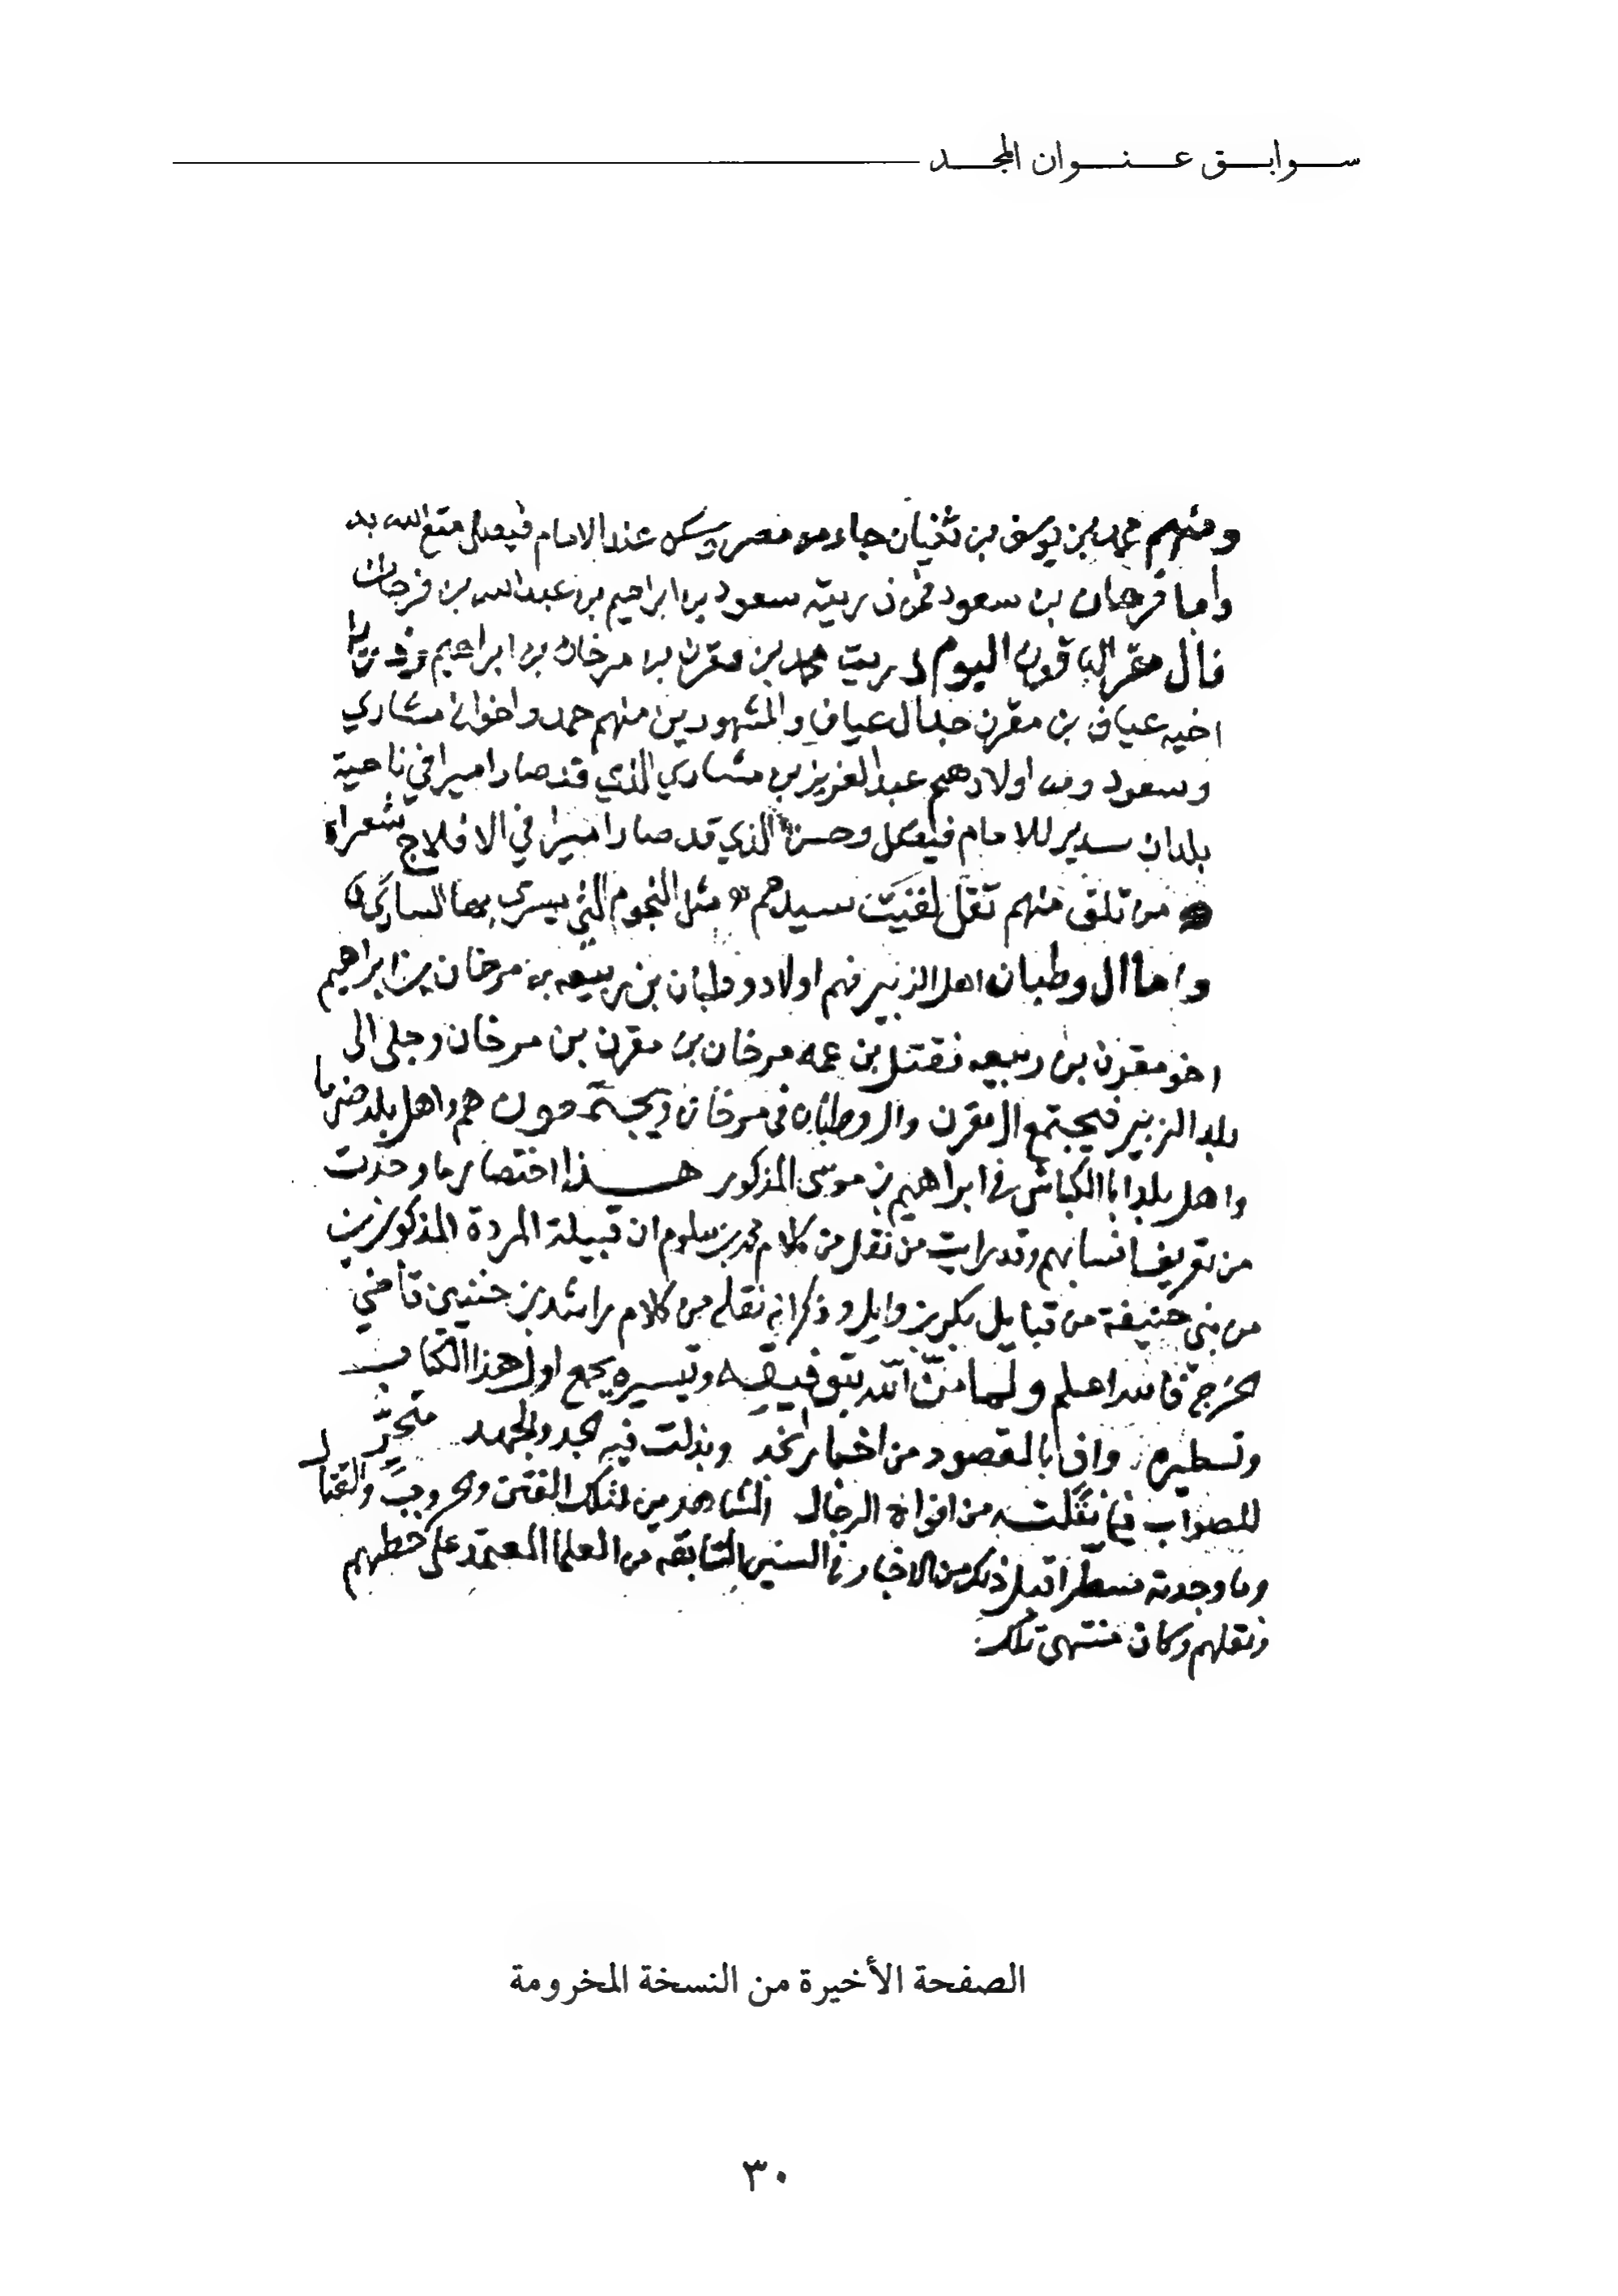 سوابق عنوان المجد
ومنهم محمد بن يوسف بن ثنيان جاء من مصر وسكن عند الامام فيصل متع الله به
واما فرحان بن سعود فمن ذريته سعود بن ابراهيم بن عبدالله بن فرحان
فال مقرن الباقون اليوم ذريت محمد بن مقرن بن مرخان بن ابراهيم
اخيه عياف بن مقرن جد ال عياف والمشهورين منهم حمد واخوانه مشاري
وسعود ومن اولادهم عبدالعزيز بن مشاري الذي قد صار اميرا في ناحية
بلدان سدير للامام فيصل وحسن الذي قد صار اميرا في الافلاج شعرا
من تلق منهم تقل لقيت سيدهم مثل النجوم التي يسري بها الساري
واما ال وطبان اهل الزبير فهم اولاد وطبان بن ربيعه بن مرخان بن ابراهيم
اخو مقرن بن ربيعه فقتل بن عمه مرخان بن مقرن بن مرخان وجلى الى
بلد الزبير فيجتمع ال مقرن وال وطبان في مرخان ويجتمعون هم واهل بلد ضرما
واهل بلد ابا الكباش في ابراهيم بن موسى المذكور هذا اختصار ما وجدت
من تعريف انسابهم وقد رايت من نقل من كلام محمد بن سلوم ان قبيلة المردة المذكورين
من بني حنيفة من قبايل بكر بن وايل وذكر انه نقله من كلام راشد بن خنين قاضي
الخرج فالله اعلم ولما من الله بتوفيقه وتيسيره بجمع اول هذا الكتاب
وتسطيره وافا بالمقصود من اخبار نجد وبذلت فيه الجد والجهد متحر
للصواب فيما نقلته من افواه الرجال المشاهدين لتلك الفتن والحروب والقتال
وما وجدته مسطرا قبل ذلك من الاخبار في السنين السابقه من العلما المعتمد على خطهم
ونقلهم وكان منتهى تلك
الصفحة الأخيرة من النسخة المخرومة
٣٠